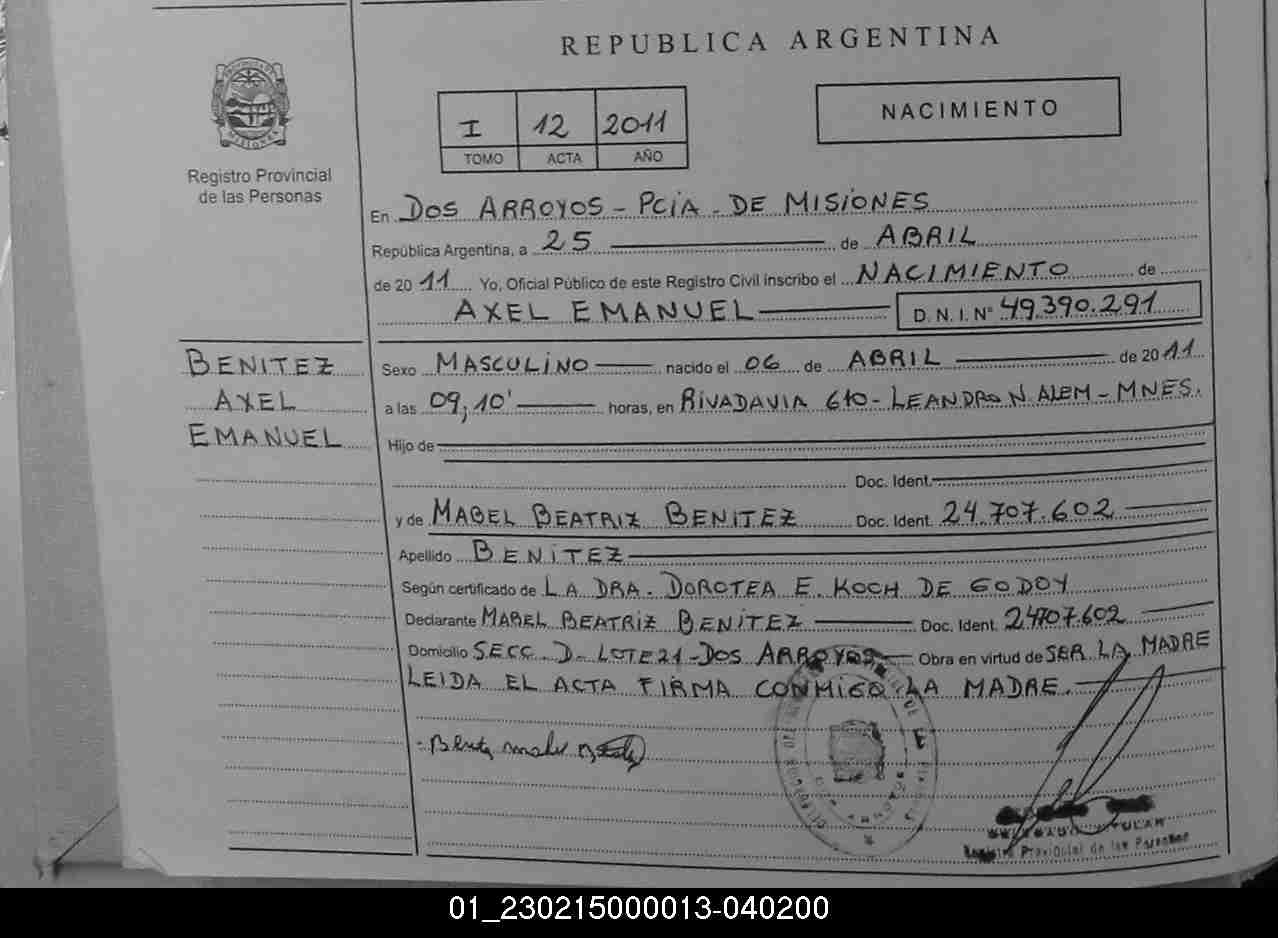 REPUBLICA ARGENTINA
PROVINCIA DE MISIONES
Registro Provincial
de las Personas
I 12 2011
TOMO ACTA AÑO
NACIMIENTO
En DOS ARROYOS - PCIA - DE MISIONES
República Argentina, a 25 de ABRIL
de 2011 Yo, Oficial Público de este Registro Civil inscribo el NACIMIENTO de
AXEL EMANUEL D. N. I. N° 49.390.291
BENITEZ
AXEL
EMANUEL
Sexo MASCULINO nacido el 06 de ABRIL de 2011
a las 09,10' horas, en RIVADAVIA 610 - LEANDRO N. ALEM - MNES.
Hijo de
Doc. Ident.
y de MABEL BEATRIZ BENITEZ Doc. Ident. 24.707.602
Apellido BENITEZ
Según certificado de LA DRA. DOROTEA E. KOCH DE GODOY
Declarante MABEL BEATRIZ BENITEZ Doc. Ident. 24707.602
Domicilio SECC. D - LOTE 21 - DOS ARROYOS Obra en virtud de SER LA MADRE
LEIDA EL ACTA FIRMA CONMIGO LA MADRE.
DELEGADO TITULAR
Registro Provincial de las Personas
01_230215000013-040200